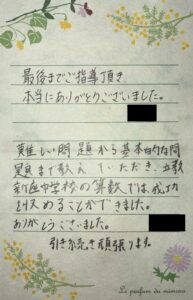 最後までご指導頂き
本当にありがとうございました。
難しい問題から基本的な問
題まで教えていただき、
中学校の算数では成功
収めることができました。
ありがとうございました。
引き続き頑張ります。
Le parfum du mimosa